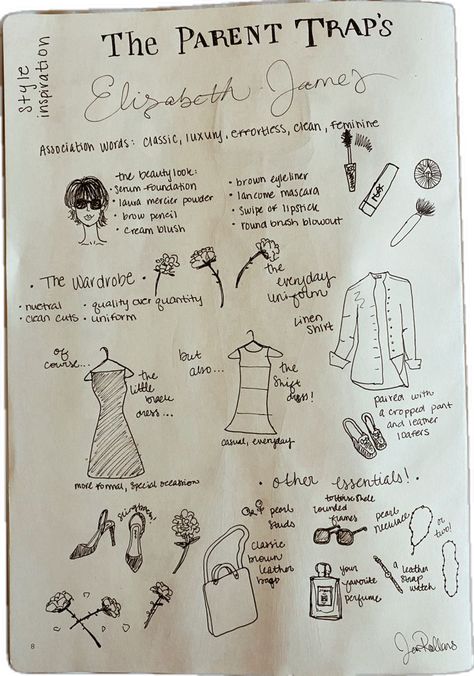 style
inspiration
THE PARENT TRAP'S
Elizabeth James
ASSOCIATION WORDS: classic, luxury, effortless, clean, feminine
the beauty look:
• serum-foundation
• laura mercier powder
• brow pencil
• cream blush
• brown eyeliner
• lancome mascara
• swipe of lipstick
• round brush blowout
• The Wardrobe •
• nuetral
• quality over quantity
• clean cuts
• uniform
the
everyday
uniform
linen
shirt
paired with
a cropped pant
and leather
loafers
of
course...
the
little
black
dress...
more formal, special occassion
but
also...
the
shift
dress!
casual, everyday
• other essentials! •
slingbacks!
pearl
studs
classic
brown
leather
bags
tortoise shell
rounded
frames
pearl
necklace
or
two!
your
favorite
perfume
a
leather
strap
watch
8